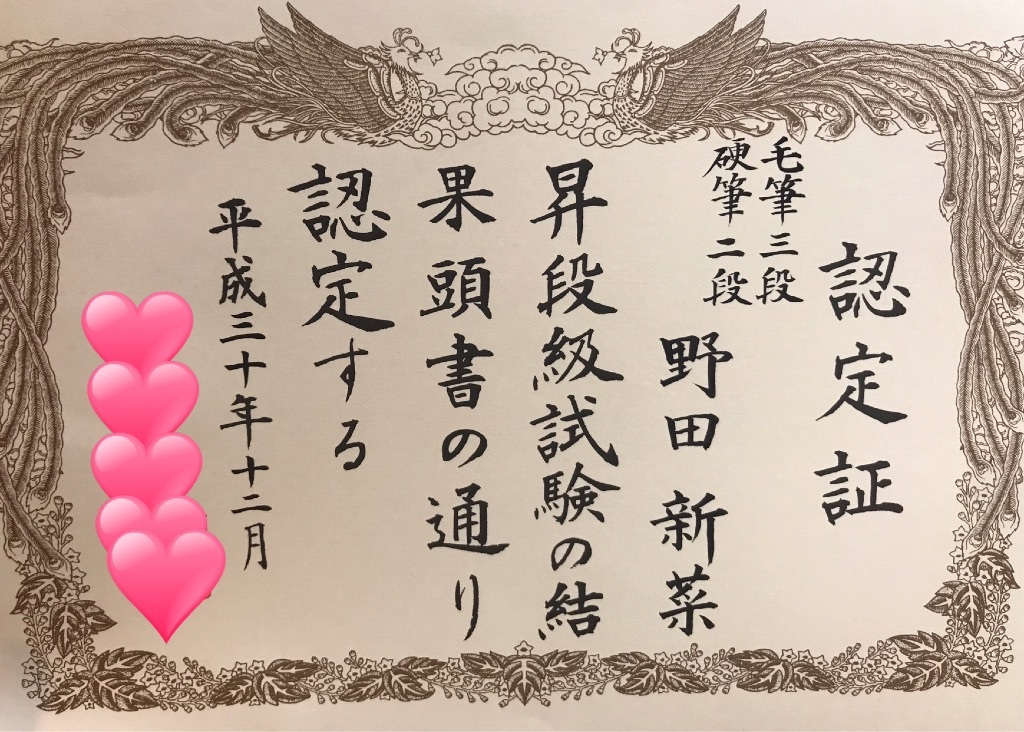 認定証
毛筆三段
硬筆二段
野田 新菜
昇段級試験の結
果頭書の通り
認定する
平成三十年十二月